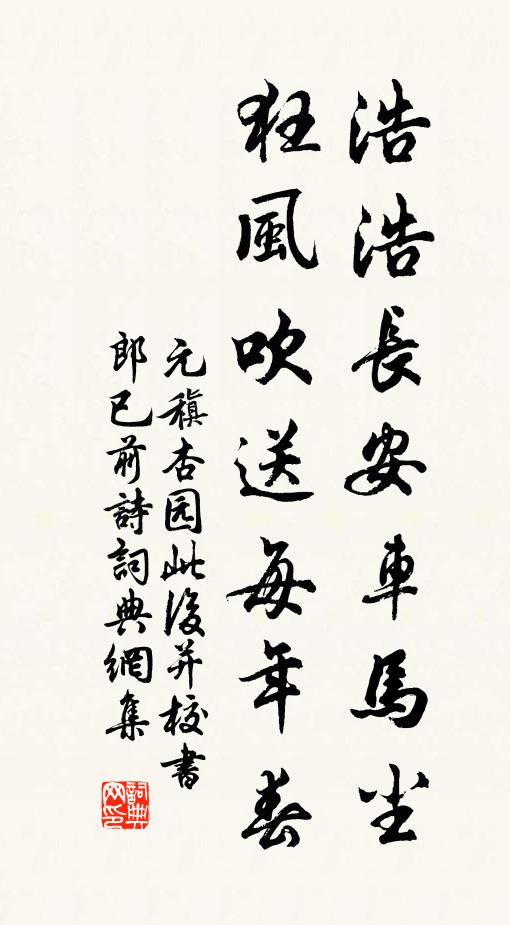 浩浩長安車馬尘
狂風吹送每年春
元稹杏园此後并校書
郎已前詩詞典網集
詞典网印